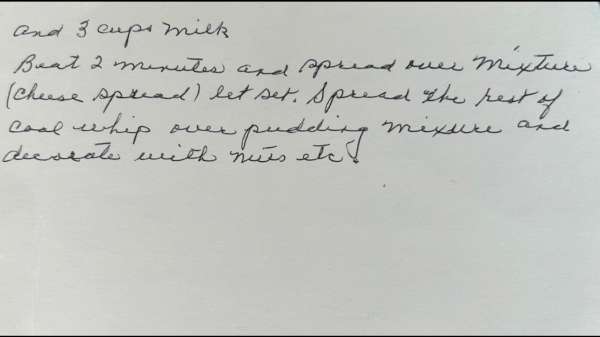 and 3 cups milk
Beat 2 minutes and spread over mixture
(cheese spread) let set. Spread the rest of
cool whip over pudding mixture and
decorate with nuts etc.